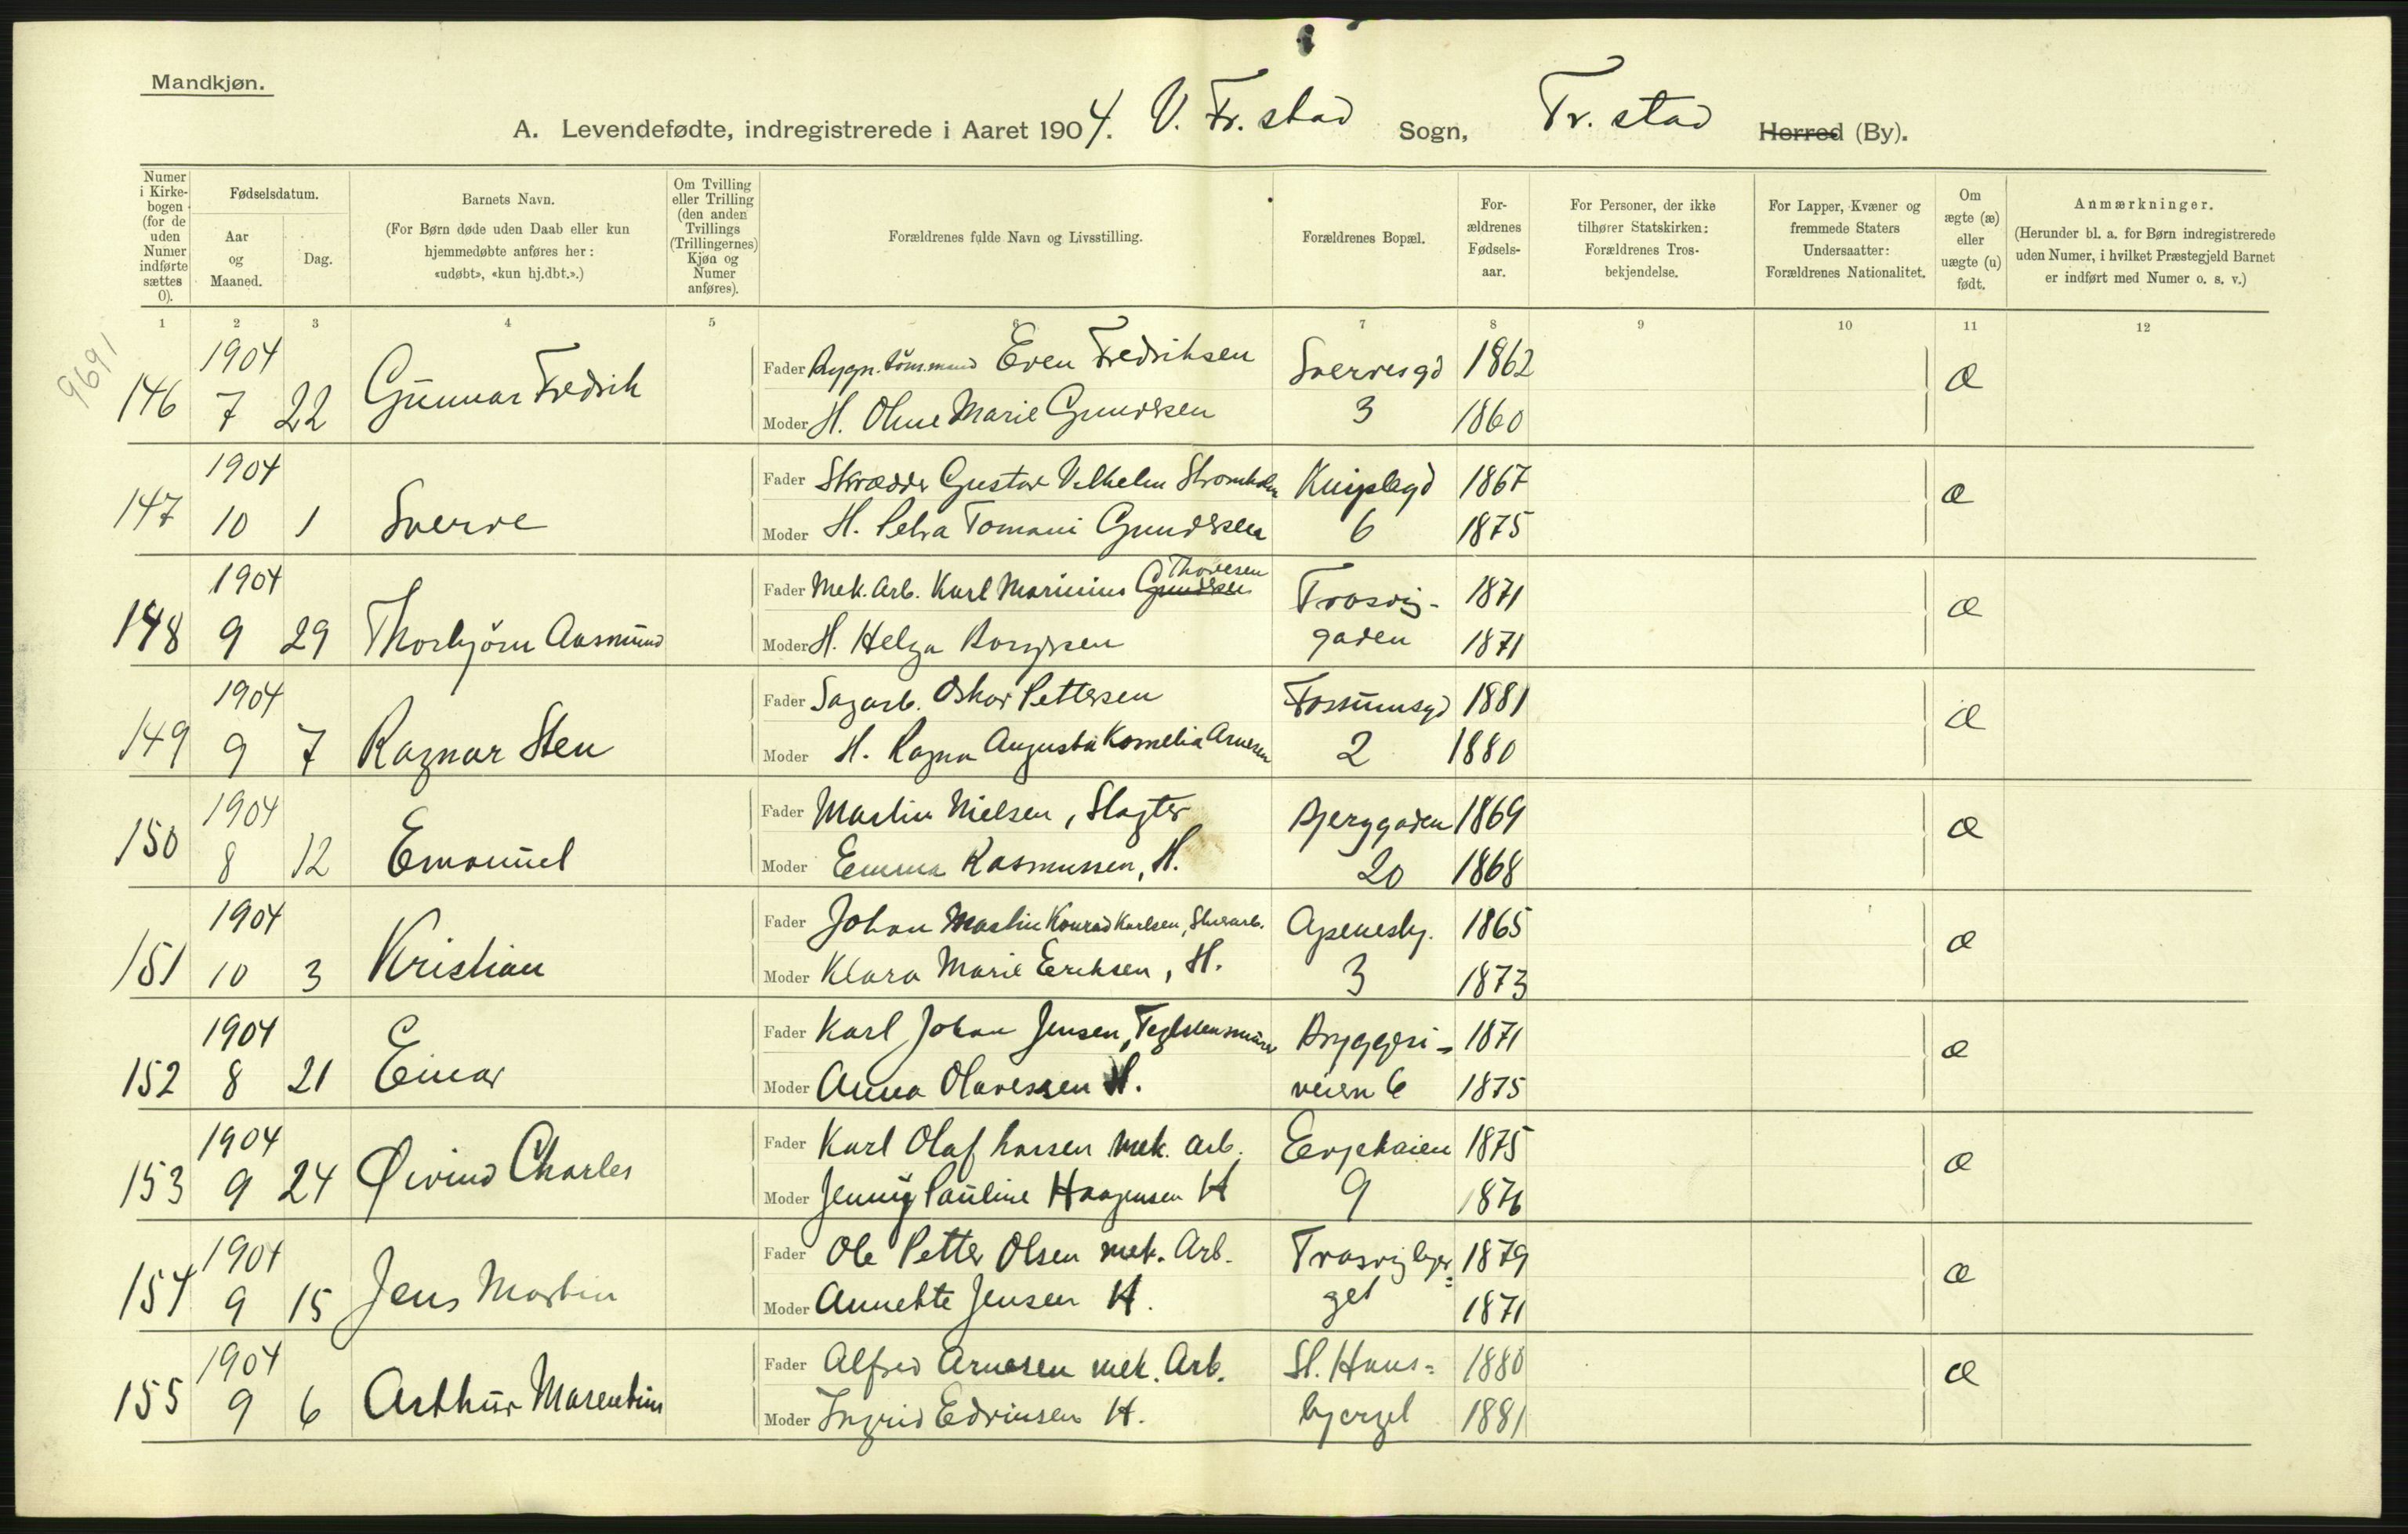 Mandkjøn.
A. Levendefødte, indregistrerede i Aaret 1904. V. Fr.stad Sogn, Fr.stad Herred (By).
Numer i Kirkebogen (for de uden Numer indførte sættes 0).
Fødselsdatum.
Aar og Maaned.
Dag.
Barnets Navn.
(For Børn døde uden Daab eller kun hjemmedøbte anføres her: «udøbt», «kun hj.dbt.».)
Om Tvilling eller Trilling (den anden Tvillings (Trillingernes) Kjøn og Numer anføres).
Forældrenes fulde Navn og Livsstilling.
Forældrenes Bopæl.
Forældrenes Fødselsaar.
For Personer, der ikke tilhører Statskirken: Forældrenes Trosbekjendelse.
For Lapper, Kvæner og fremmede Staters Undersaatter: Forældrenes Nationalitet.
Om ægte (æ) eller uægte (u) født.
Anmærkninger.
(Herunder bl. a. for Børn indregistrerede uden Numer, i hvilket Præstegjeld Barnet er indført med Numer o. s. v.)
1 2 3 4 5 6 7 8 9 10 11 12
9691
146 1904 7 22 Gunnar Fredrik
Fader Bygn.tømmmd Even Fredriksen Sverresgd 1862 æ
Moder H. Oline Marie Gundersen 3 1860
147 1904 10 1 Sverre
Fader Skrædder Gustav Vilhelm Stromholm 1867 æ
Moder H. Petra Tomani Gundersen 6 1875
148 1904 9 29 Thorbjørn Aasmund
Fader Mek. Arb. Karl Marinius Gundersen Thoresen Trosvig- 1871 æ
Moder H. Helga Borgersen gaden 1871
149 1904 9 7 Ragnar Sten
Fader Sagarb. Oskar Pettersen Fossumsgd 1881 æ
Moder H. Ragna Augusta Kornelia Arnesen 2 1880
150 1904 8 12 Emanuel
Fader Martin Nielsen, Slagter Bjerggaden 1869 æ
Moder Emma Rasmussen, H. 20 1868
151 1904 10 3 Kristian
Fader Johan Martin Konrad Karlsen, Stuearb. Apenesby. 1865 æ
Moder Klara Marie Eriksen, H. 3 1873
152 1904 8 21 Einar
Fader Karl Johan Jensen, Teglstensmurer Bryggeri- 1871 æ
Moder Anna Olavessen H. veien 6 1875
153 1904 9 24 Øivind Charles
Fader Karl Olaf Larsen mek. arb. 1875 æ
Moder Jenny Pauline Haagensen H 9 1876
154 1904 9 15 Jens Martin
Fader Ole Petter Olsen mek. Arb. Trosvigbjer= 1879 æ
Moder Annette Jensen H. get 1871
155 1904 9 6 Arthur Marentius
Fader Alfred Arnesen mek. Arb. St. Hans= 1880 æ
Moder Ingrid Edvinsen H. bjerget 1881